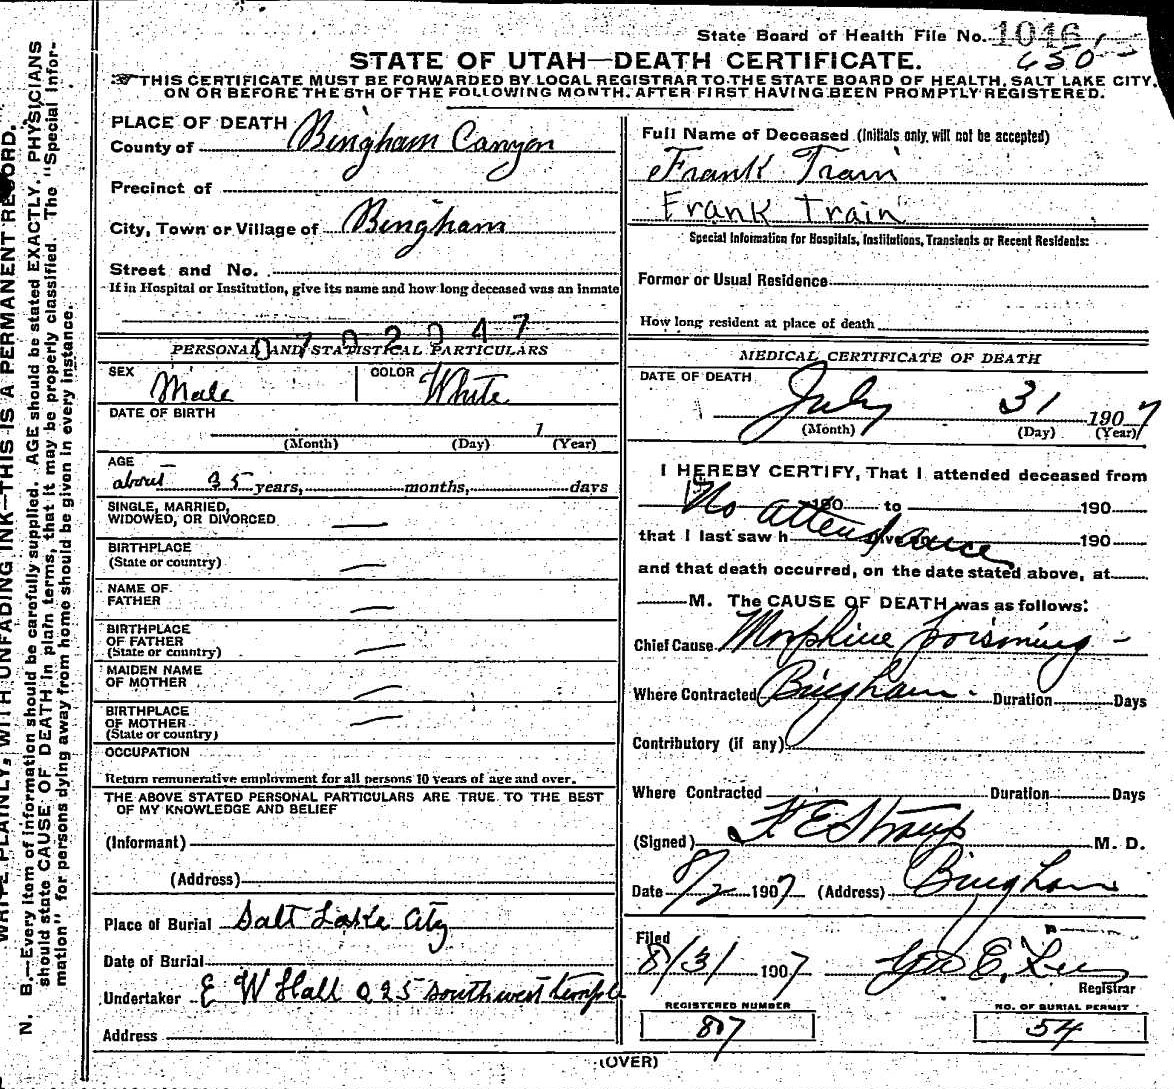 State Board of Health File No. 1046
650
STATE OF UTAH—DEATH CERTIFICATE.
THIS CERTIFICATE MUST BE FORWARDED BY LOCAL REGISTRAR TO THE STATE BOARD OF HEALTH, SALT LAKE CITY,
ON OR BEFORE THE 5TH OF THE FOLLOWING MONTH, AFTER FIRST HAVING BEEN PROMPTLY REGISTERED.
WRITE PLAINLY, WITH UNFADING INK—THIS IS A PERMANENT RECORD.
N. B.—Every item of information should be carefully supplied. AGE should be stated EXACTLY. PHYSICIANS
should state CAUSE OF DEATH in plain terms, that it may be properly classified. The "Special Infor-
mation" for persons dying away from home should be given in every instance.
PLACE OF DEATH
County of Bingham Canyon
Precinct of
City, Town or Village of Bingham
Street and No.
If in Hospital or Institution, give its name and how long deceased was an inmate
0702047
PERSONAL AND STATISTICAL PARTICULARS
SEX Male COLOR White
DATE OF BIRTH
1
(Month) (Day) (Year)
AGE
about 35 years, months, days
SINGLE, MARRIED,
WIDOWED, OR DIVORCED —
BIRTHPLACE
(State or country) —
NAME OF
FATHER —
BIRTHPLACE
OF FATHER
(State or country) —
MAIDEN NAME
OF MOTHER —
BIRTHPLACE
OF MOTHER
(State or country) —
OCCUPATION
Return remunerative employment for all persons 10 years of age and over.
THE ABOVE STATED PERSONAL PARTICULARS ARE TRUE TO THE BEST
OF MY KNOWLEDGE AND BELIEF
(Informant)
(Address)
Place of Burial Salt Lake City
Date of Burial
Undertaker E W Hall 225 south west temple
Address
Full Name of Deceased (Initials only, will not be accepted)
Frank Train
Frank Train
Special Information for Hospitals, Institutions, Transients or Recent Residents:
Former or Usual Residence
How long resident at place of death
MEDICAL CERTIFICATE OF DEATH
DATE OF DEATH
July 31 1907
(Month) (Day) (Year)
I HEREBY CERTIFY, That I attended deceased from
No attendance 190 to 190
that I last saw h alive on 190
and that death occurred, on the date stated above, at
M. The CAUSE OF DEATH was as follows:
Chief Cause Morphine poisoning —
Where Contracted Bingham. Duration Days
Contributory (if any)
Where Contracted Duration Days
(Signed) F E Straup M. D.
Date 8/2 1907 (Address) Bingham
Filed
8/3/ 1907 Geo E. Lee
Registrar
REGISTERED NUMBER NO. OF BURIAL PERMIT
87 54
(OVER)